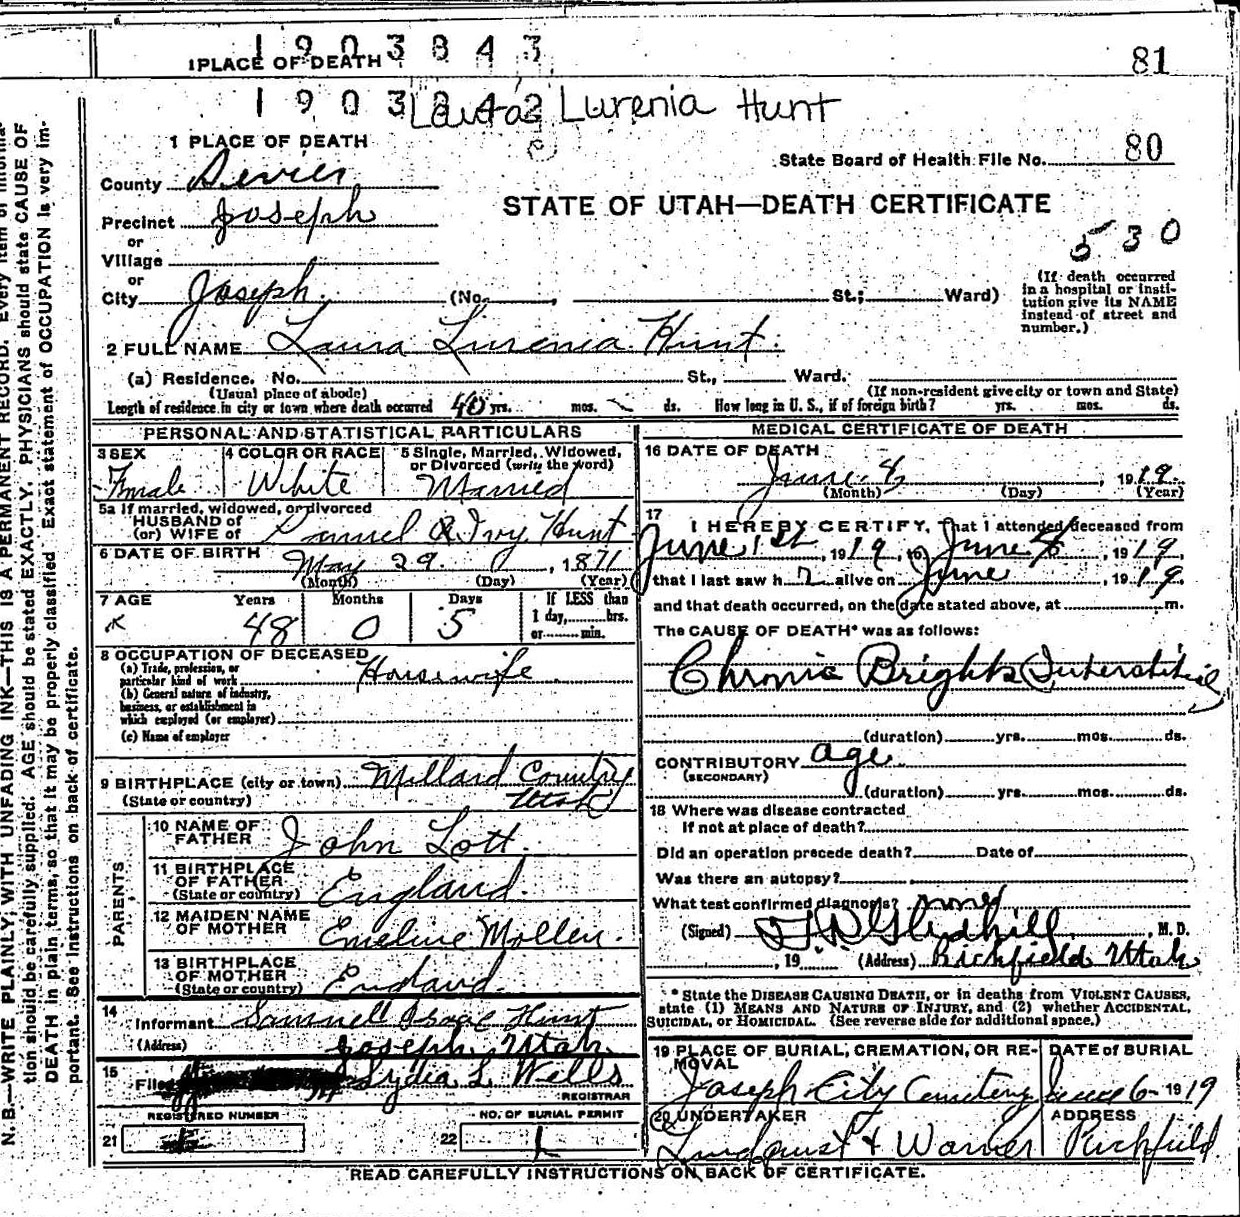 1903843
1 PLACE OF DEATH
81
1903842
Laura Lurenia Hunt
1 PLACE OF DEATH
State Board of Health File No. 80
County Sevier
STATE OF UTAH—DEATH CERTIFICATE
Precinct Joseph
530
or
Village
or
City Joseph (No. , St.; Ward)
(If death occurred
in a hospital or insti-
tution give its NAME
instead of street and
number.)
2 FULL NAME Laura Lurenia Hunt.
(a) Residence. No. St., Ward.
(Usual place of abode) (If non-resident give city or town and State)
Length of residence in city or town where death occurred 40 yrs. mos. ds. How long in U. S., if of foreign birth? yrs. mos. ds.
PERSONAL AND STATISTICAL PARTICULARS
3 SEX 4 COLOR OR RACE 5 Single, Married, Widowed,
or Divorced (write the word)
Female White Married
5a If married, widowed, or divorced
HUSBAND of
(or) WIFE of Hunt
6 DATE OF BIRTH May 29, 1871
(Month) (Day) (Year)
7 AGE Years Months Days If LESS than
1 day, hrs.
or min.
48 0 5
8 OCCUPATION OF DECEASED
(a) Trade, profession, or
particular kind of work Housewife
(b) General nature of industry,
business, or establishment in
which employed (or employer)
(c) Name of employer
9 BIRTHPLACE (city or town) Millard County
(State or country) Utah
PARENTS
10 NAME OF
FATHER John Lott.
11 BIRTHPLACE
OF FATHER
(State or country) England.
12 MAIDEN NAME
OF MOTHER Emeline Mollen.
13 BIRTHPLACE
OF MOTHER
(State or country) England.
14
Informant Samuell Isaac Hunt
(Address) Joseph, Utah.
15
Filed Lydia L Wells
REGISTRAR
REGISTERED NUMBER NO. OF BURIAL PERMIT
21 22 1
MEDICAL CERTIFICATE OF DEATH
16 DATE OF DEATH
June 4, 1919.
(Month) (Day) (Year)
17
I HEREBY CERTIFY, That I attended deceased from
June 1st, 1919, to June 4, 1919,
that I last saw h r alive on June, 1919.
and that death occurred, on the date stated above, at m.
The CAUSE OF DEATH* was as follows:
Chronic Brights Interstitial
(duration) yrs. mos. ds.
CONTRIBUTORY age
(SECONDARY)
(duration) yrs. mos. ds.
18 Where was disease contracted
If not at place of death?
Did an operation precede death? Date of
Was there an autopsy?
What test confirmed diagnosis?
(Signed) Gledhill, M. D.
, 19 (Address) Richfield Utah
* State the DISEASE CAUSING DEATH, or in deaths from VIOLENT CAUSES,
state (1) MEANS AND NATURE OF INJURY, and (2) whether ACCIDENTAL,
SUICIDAL, or HOMICIDAL. (See reverse side for additional space.)
19 PLACE OF BURIAL, CREMATION, OR RE-
MOVAL
DATE of BURIAL
Joseph City Cemetery June 6- 1919
20 UNDERTAKER ADDRESS
Lundquist & Warner Richfield
READ CAREFULLY INSTRUCTIONS ON BACK OF CERTIFICATE.
N. B.—WRITE PLAINLY, WITH UNFADING INK—THIS IS A PERMANENT RECORD. Every item of informa-
tion should be carefully supplied. AGE should be stated EXACTLY. PHYSICIANS should state CAUSE OF
DEATH in plain terms, so that it may be properly classified. Exact statement of OCCUPATION is very im-
portant. See instructions on back of certificate.